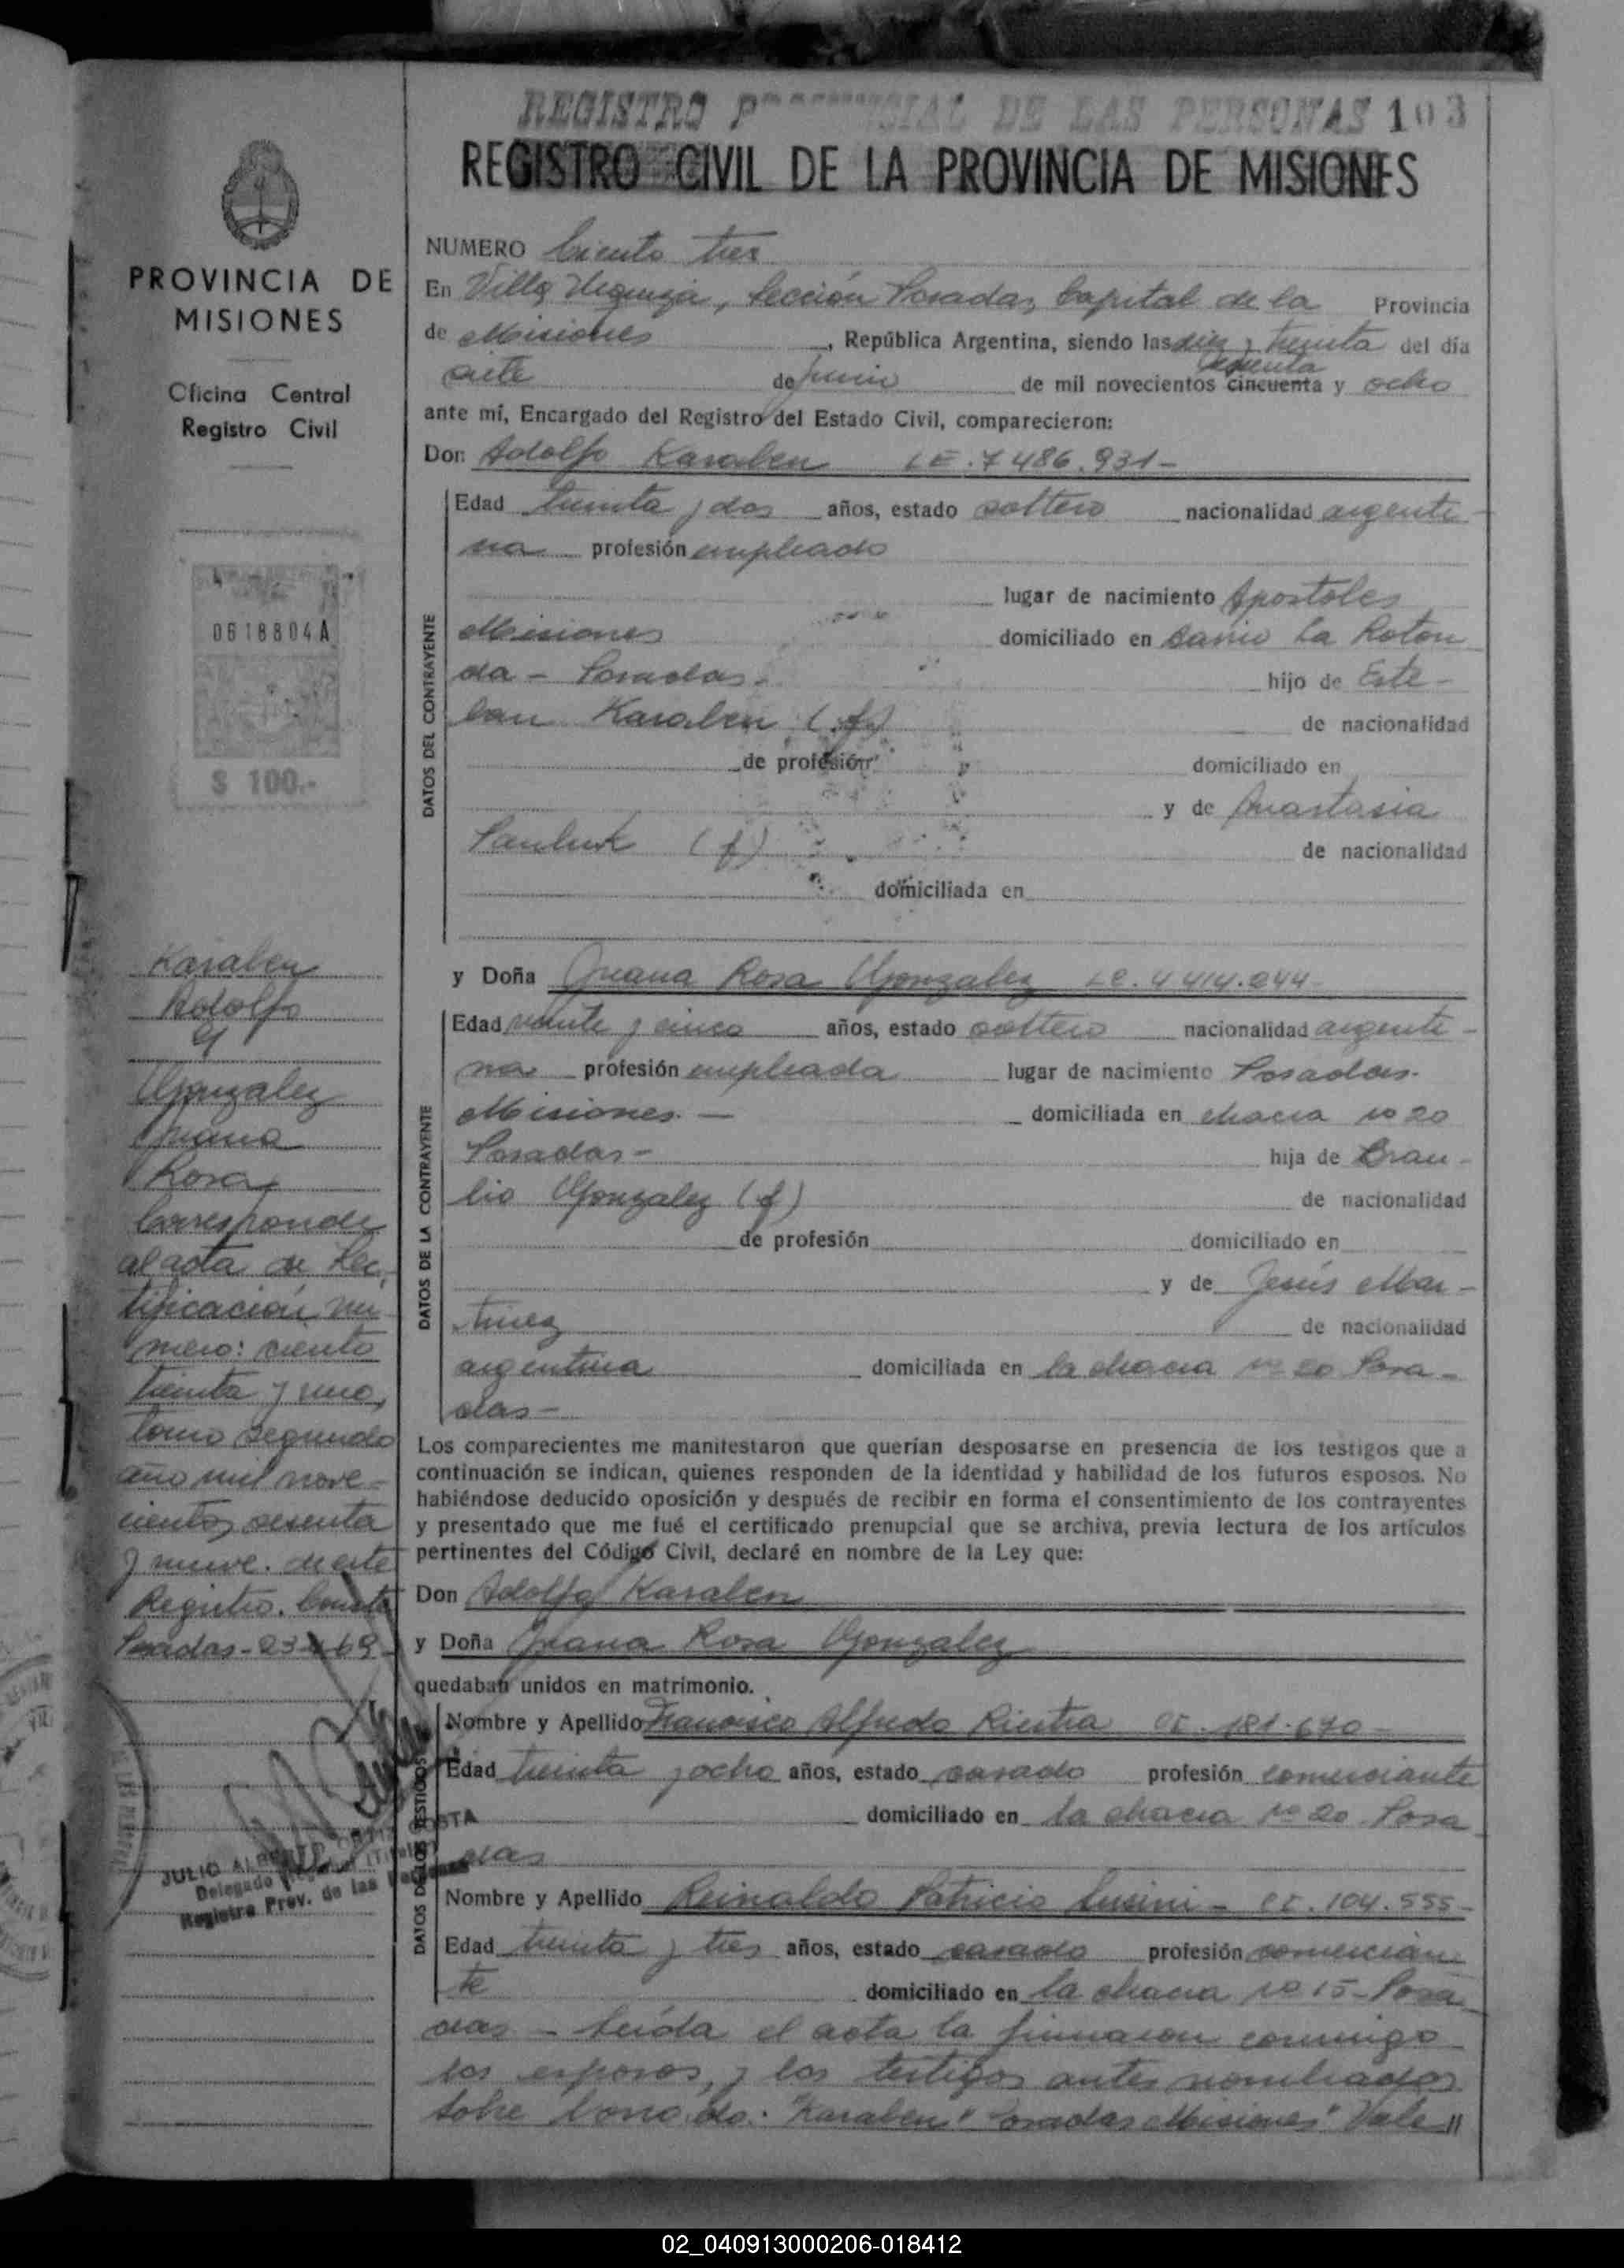 REGISTRO PROVINCIAL DE LAS PERSONAS 103
REGISTRO CIVIL DE LA PROVINCIA DE MISIONES
PROVINCIA DE
MISIONES
Oficina Central
Registro Civil
0618804A
$ 100.-
Karaben
Adolfo
y
Gonzalez
Juana
Rosa
Corresponde
al acta de Rec
tificación nú
mero: ciento
treinta y uno,
tomo segundo
año mil nove-
cientos sesenta
y nueve. de este
Registro. Conste
Posadas-23 69
JULIO ALBERTO COSTA
Delegado (Titular)
Registro Prov. de las Personas
NUMERO Ciento tres
En Villa Urquiza, Sección Posadas, Capital de la Provincia
de Misiones, República Argentina, siendo las diez y treinta del día
sesenta
siete de junio de mil novecientos cincuenta y ocho
ante mí, Encargado del Registro del Estado Civil, comparecieron:
Don Adolfo Karaben LE. 7486.931-
DATOS DEL CONTRAYENTE
Edad treinta y dos años, estado soltero nacionalidad argenti-
na profesión empleado
lugar de nacimiento Apostoles
Misiones domiciliado en barrio La Roton
da - Posadas- hijo de Este-
ban Karaben (f) de nacionalidad
de profesión domiciliado en
y de Anastasia
(f) de nacionalidad
domiciliada en
y Doña Juana Rosa Gonzalez LC. 4414.244-
DATOS DE LA CONTRAYENTE
Edad veinte y cinco años, estado soltero nacionalidad argenti-
na profesión empleada lugar de nacimiento Posadas-
Misiones- domiciliada en chacra nº 20
Posadas- hija de Brau-
lio Gonzalez (f) de nacionalidad
de profesión domiciliado en
y de Jesús Mar-
tinez de nacionalidad
argentina domiciliada en la chacra nº 20 Posa-
das-
Los comparecientes me manifestaron que querían desposarse en presencia de los testigos que a
continuación se indican, quienes responden de la identidad y habilidad de los futuros esposos. No
habiéndose deducido oposición y después de recibir en forma el consentimiento de los contrayentes
y presentado que me fué el certificado prenupcial que se archiva, previa lectura de los artículos
pertinentes del Código Civil, declaré en nombre de la Ley que:
Don Adolfo Karaben
y Doña Juana Rosa Gonzalez
quedaban unidos en matrimonio.
DATOS DE LOS TESTIGOS
Nombre y Apellido Francisco Alfredo Riestra CI. 181.670-
Edad treinta y ocho años, estado casado profesión comerciante
domiciliado en la chacra nº 20 Posa
das
Nombre y Apellido Reinaldo Patricio CI. 104.555-
Edad treinta y tres años, estado casado profesión comercian
te domiciliado en la chacra nº 15-Posa
das - Leída el acta la firmaron conmigo
los esposos, y los testigos antes nombrados
Sobre borrado: "Karaben" "Posadas Misiones" Vale"
02_040913000206-018412